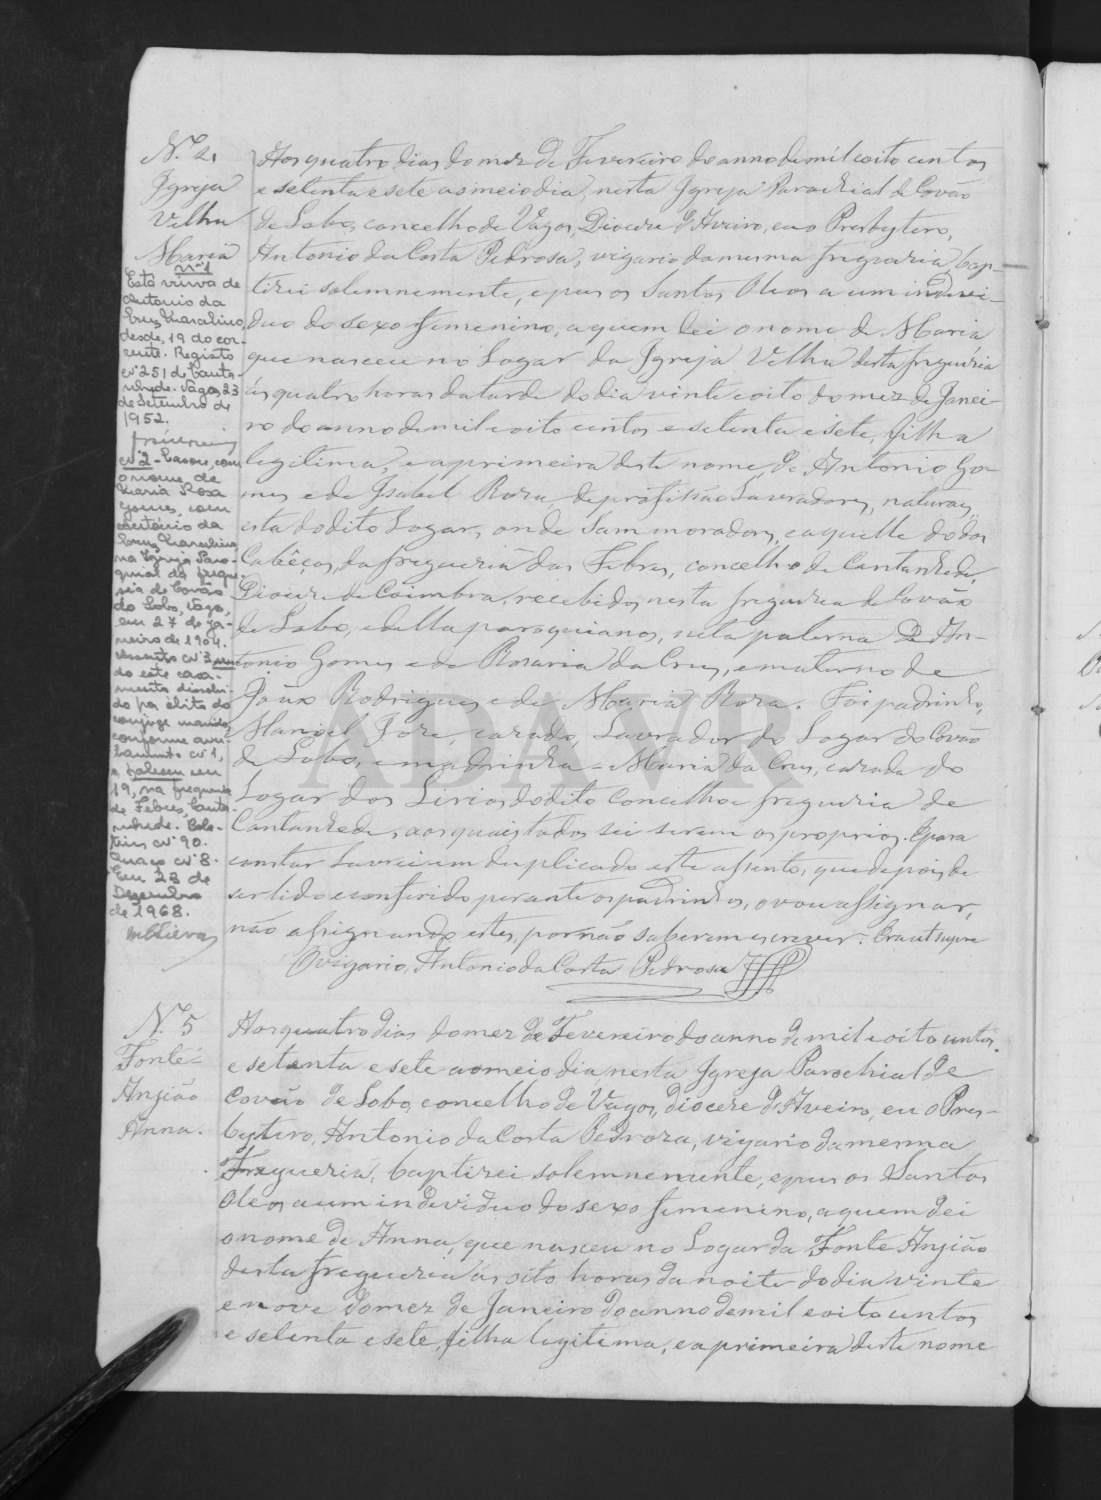 N.º 2.
Igreja
Velha
Maria
nº 1
Está viuva de
Antonio da
Cruz Marcelino
desde, 19 do cor-
rente. Registo
nº 251 de Canta-
nhede. Vagos, 23
de Setembro de
1952.
nº 2 - Casou, com
o nome de
Maria Rosa
Gomes, com
António da
Cruz Marcelino
na Igreja Paro-
quial da fregue-
sia de Covão
do Lobo, Vagos,
em 27 de Ja-
neiro de 1904.
nº 3
do este casa-
mento dissolvi-
do por óbito do
conjuge marido,
conforme aver-
bamento nº 1,
e faleceu em
19, na freguesia
de Febres, Canta-
nhede. Bole-
tim nº 90.
Maço nº 8.
Em 23 de
Dezembro
de 1968.
Aos quatro dias do mez de Fevereiro do anno de mil e oito centos
e setenta e sete ao meio dia, nesta Igreja Parochial de Covão
de Lobo, concelho de Vagos, Diocese d'Aveiro, eu o Presbytero,
Antonio da Costa Pedrosa, vigario da mesma freguezia, bap-
tizei solemnemente, e puz os Santos Oleos a um indevi-
duo do sexo femenino, a quem dei o nome de Maria
que nasceu no Logar da Igreja Velha desta freguezia
ás quatro horas da tarde do dia vinte e oito do mez de Janei-
ro do anno de mil e oito centos e setenta e sete, filha
legitima, e a primeira deste nome, de Antonio Go-
mes e de Isabel Roza de profissão Lavradores, naturaes,
esta do dito Logar, onde sam moradores, e aquelle do dos
Cabêços, da freguezia das Febres, concelho de Cantanhede,
Diocese de Coimbra, recebidos nesta freguezia de Covão
de Lobo, e della paroquianos, neta paterna de An-
tonio Gomes e de Rosaria da Cruz, e materno de
João Rodrigues e de Maria Roza. Foi padrinho,
Manoel Jozé, cazado, Lavrador do Logar do Covão
de Lobo, e madrinha - Maria da Cruz, cazada do
Logar dos Lirios do dito Concelho e freguezia de
Cantanhede, aos quaes todos sei serem os proprios. E para
constar lavrei em duplicado este assento, que depois de
ser lido e conferido perante os padrinhos, o vou assignar,
não assignando estes, por não saberem escrever. Era ut supra
O vigario, Antonio da Costa Pedrosa
N.º 5
Fonte-
Anjião
Anna.
Aos quatro dias do mez de Fevereiro do anno de mil e oito centos
e setenta e sete ao meio dia, nesta Igreja Parochial de
Covão de Lobo, concelho de Vagos, diocese d'Aveiro, eu o Pres-
bytero, Antonio da Costa Pedroza, vigario da mesma
Freguezia, baptizei solemnemente, e puz os Santos
Oleos a um individuo do sexo femenino, a quem dei
o nome de Anna, que nasceu no Logar da Fonte Anjião
desta freguezia ás oito horas da noite do dia vinte
e nove do mez de Janeiro do anno de mil e oito centos
e setenta e sete, filha legitima, e a primeira deste nome
ADAVR